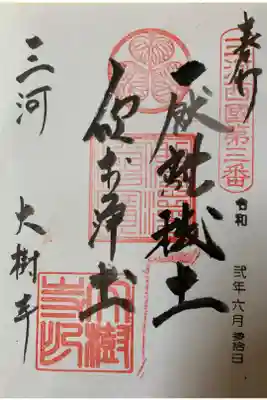 奉拝
三河西國第三番
令和 弐年六月参拾日
厭離穢土
欣求浄土
三河 大樹寺
大樹寺印